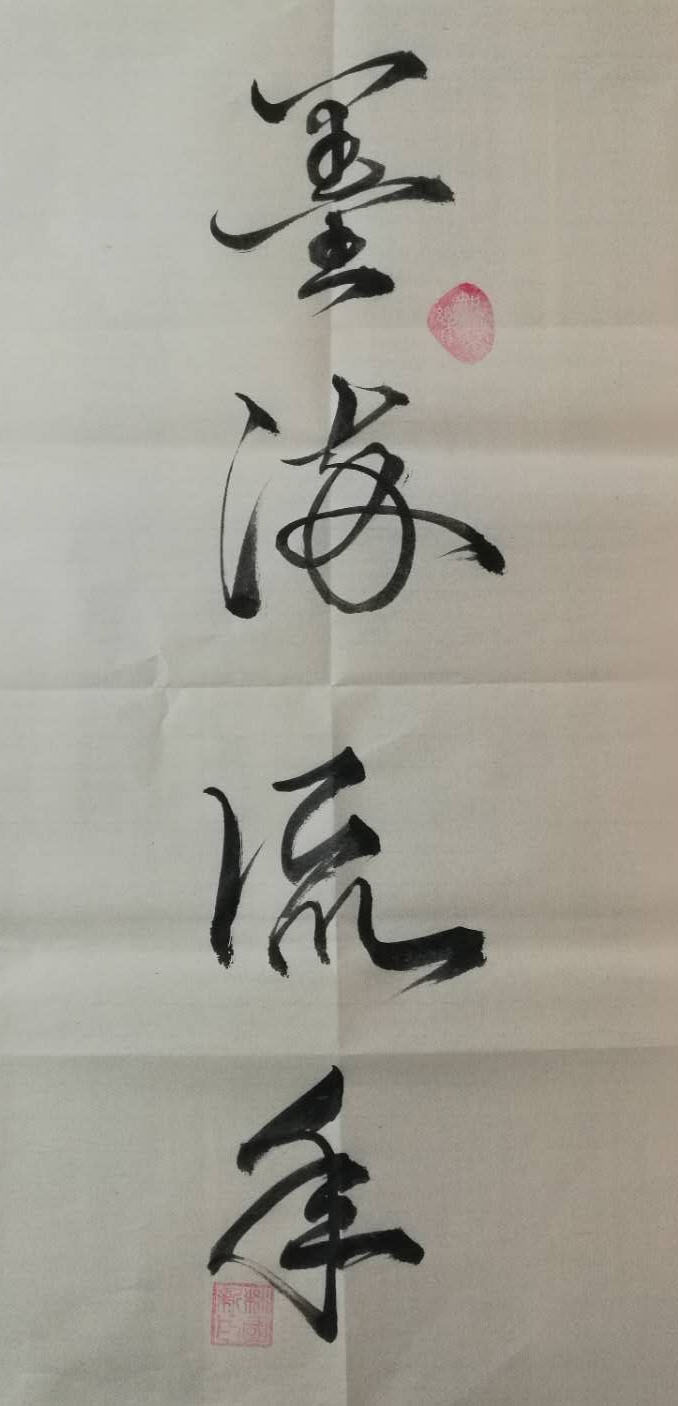 墨海流年